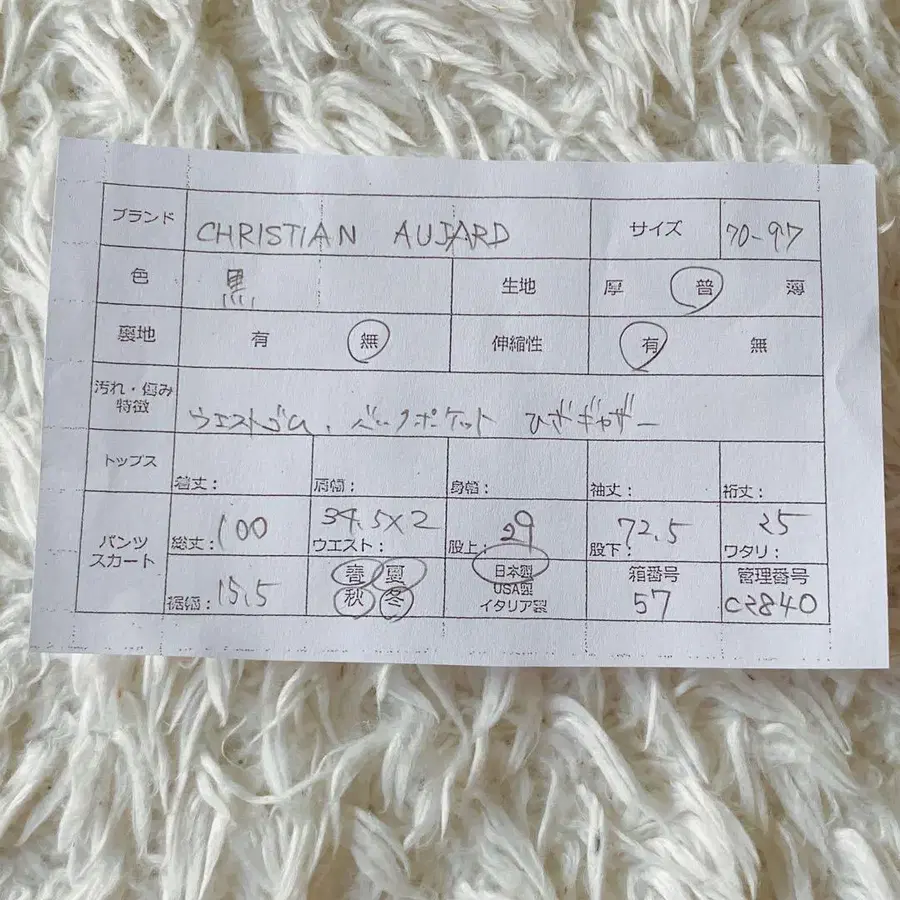 ブランド CHRISTIAN AUJARD サイズ 70-97
色 黒 生地 厚 普 薄
裏地 有 無 伸縮性 有 無
汚れ・傷み
特徴
ウエストゴム、バックポケット ひざギャザー
トップス 着丈: 肩幅: 身幅: 袖丈: 裄丈:
パンツ
スカート
総丈: 100 34.5×2 ウエスト: 股上: 29 72.5 股下: 25 ワタリ:
裾幅: 15.5
春 夏
秋 冬
日本製
USA製
イタリア製
箱番号
57
管理番号
C2840